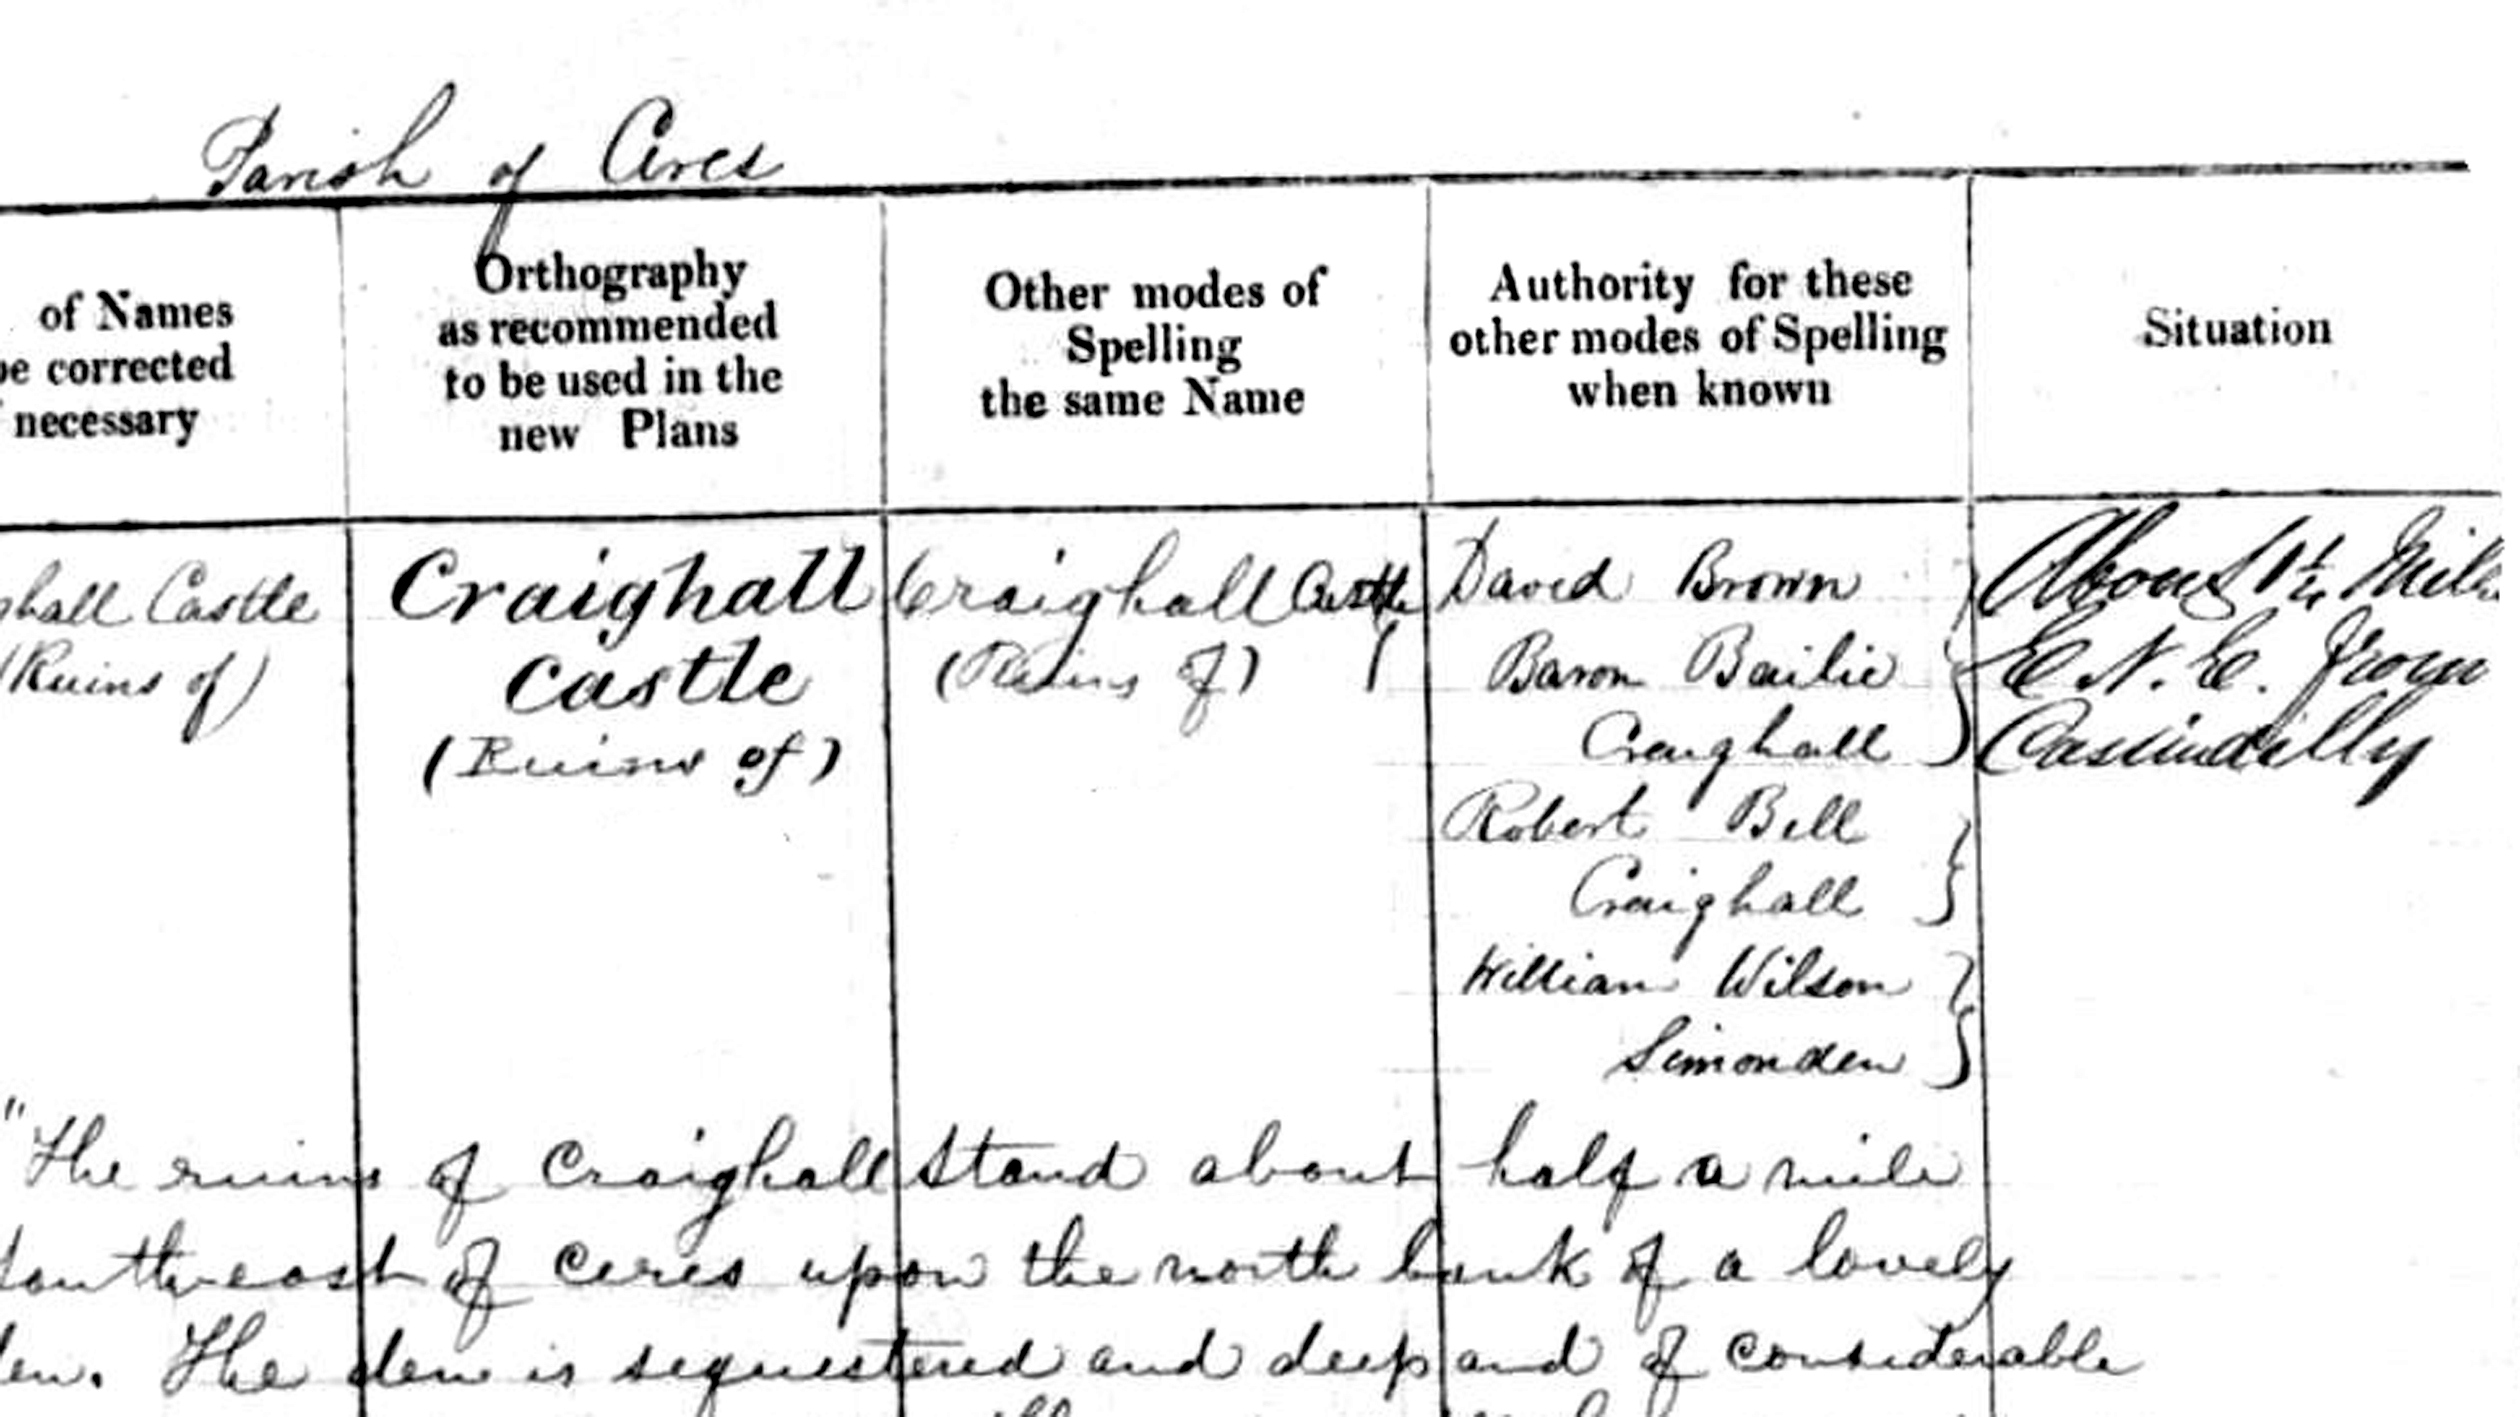 Parish of Ceres
of Names
be corrected
f necessary
Orthography
as recommended
to be used in the
new Plans
Other modes of
Spelling
the same Name
Authority for these
other modes of Spelling
when known
Situation
ghall Castle
(Ruins of)
Craighall
Castle
(Ruins of)
Craighall Castle
(Ruins of)
David Brown
Baron Bailie
Craighall
Robert Bell
Craighall
William Wilson
Simonden
About 1¼ Mile
E.N.E. from
Cassindilly
"The ruins of Craighall stand about half a mile
Southeast of Ceres upon the north bank of a lovely
den. The den is sequestered and deep and of considerable